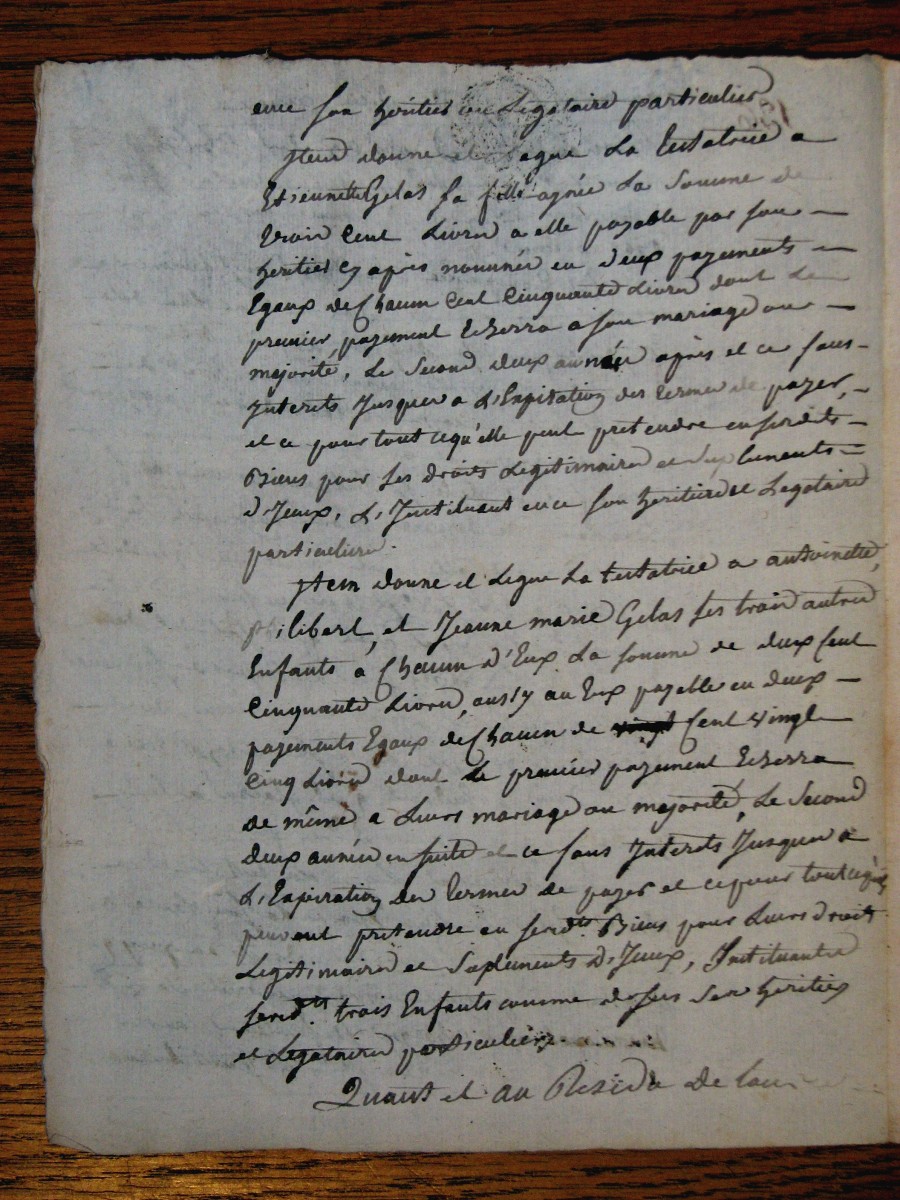 ence son heritier ou Legataire particulier
Item donne et Legue La testatrice a
Etiennette Gelas sa fille agnée La Somme de
trois Cent Livres a elle payable par son
heritier cy après nommée en deux payements
Egaux de Chacun Cent Cinquante Livres dont Le
premier payement Echerra a son mariage ou
majorité, Le Second deux année après et ce sans
Interets Jusques a L'Expiration des termes de payer,
et ce pour tout ce qu'elle peut pretendre en sesdits
Biens pour ses droits Legitimaires et suplements
d'Iceux, L'Instituant en ce son heritiere et Legataire
particuliere.
Item donne et Legue La testatrice a antoinette,
philibert, et Jeanne marie Gelas ses trois autres
Enfants a Chacun d'Eux La somme de deux Cent
Cinquante Livres, aussy au Eux payable en deux
payements Egaux de Chacun de vingt Cent vingt
Cinq Livres dont Le premier payement Echerra
de même a Leurs mariage ou majorité, Le Second
deux année en suite et ce sans Interets Jusques a
L'Expiration des termes de payer et ce pour tout ce qu'ils
peuvent pretendre en sesd.ts Biens pour Leurs droits
Legitimaires et Suplements d'Iceux, Instituant
sesd.ts trois Enfants comme dessus Ses heritiers
et Legataires particuliers.
Quant et au Residu de tous